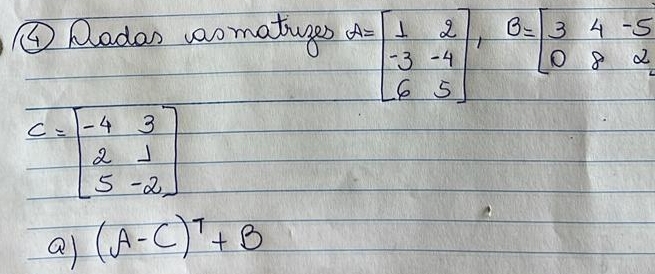 ④ Dadas as matrizes A= [1 2], B= [3 4 -5]
[-3 -4] [0 8 2]
[6 5]
C = [-4 3]
[2 1]
[5 -2]
a) (A-C)ᵀ + B